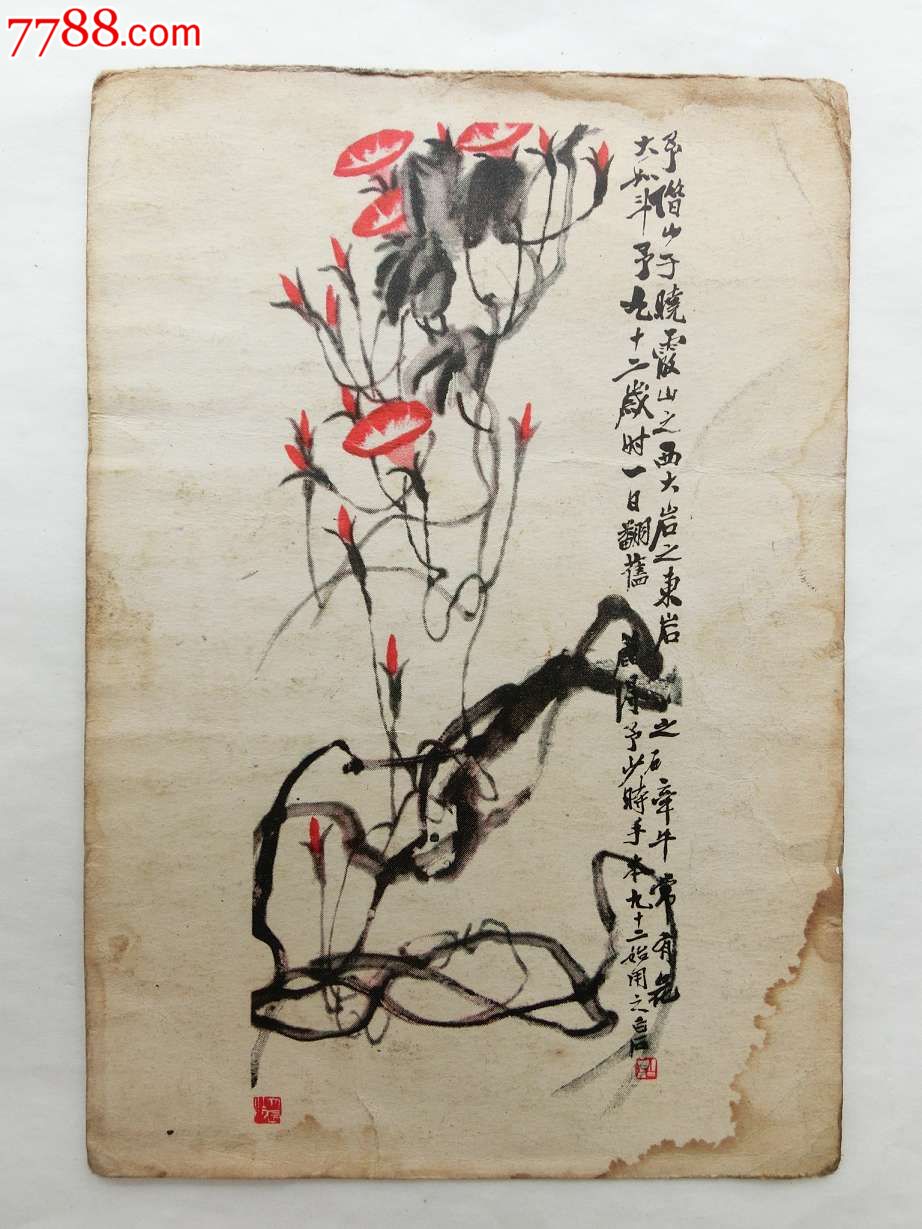 7788.com
予借山于曉霞山之西大岩之東岩之石牽牛常有花
大如斗予九十二歲时一日翻舊
得予少時手本九十二始用之白石